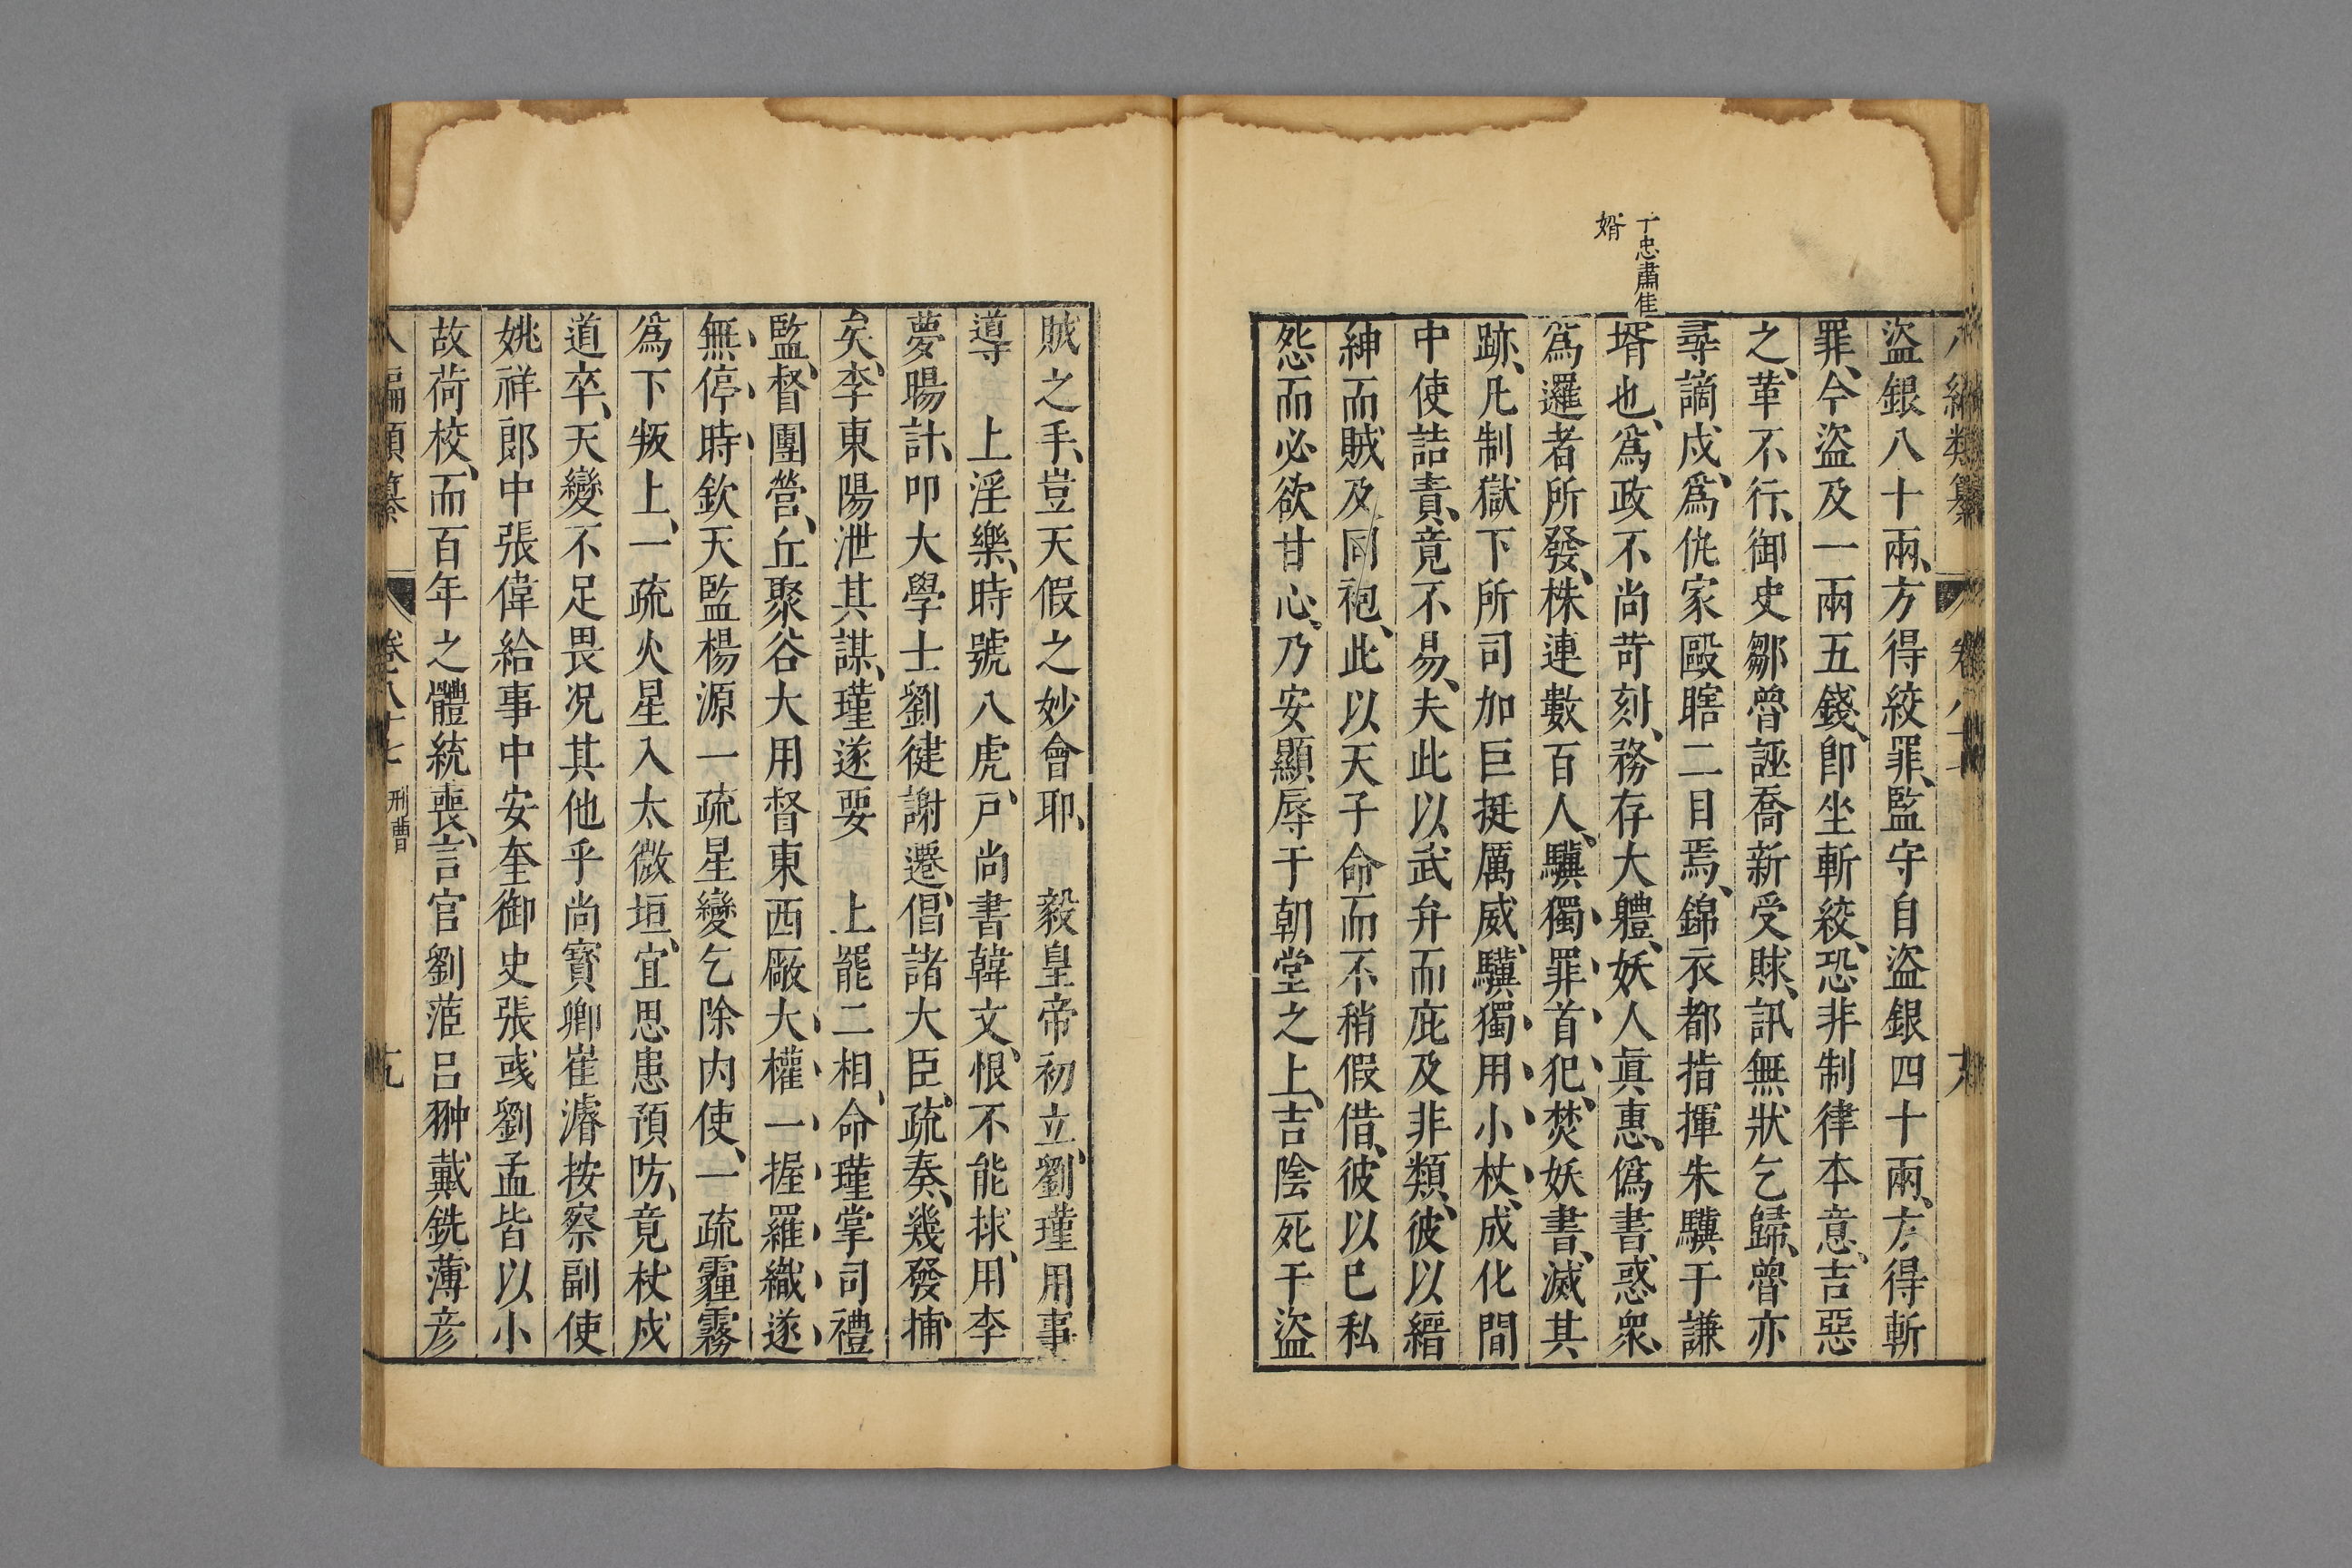 盜銀八十兩、方得絞罪、監守自盜銀四十兩、方得斬
罪、今盜及一兩五錢、即坐斬絞、恐非制律本意、吉惡
之、革不行、御史鄒魯誣喬新受賕、訊無狀乞歸、魯亦
尋謫戍、爲仇家毆瞎二目焉、錦衣都指揮朱驥于謙
壻也、爲政不尚苛刻、務存大體、妖人眞惠、僞書惑衆、
爲邏者所發、株連數百人、驥獨罪首犯、焚妖書、滅其
跡、凡制獄下所司加巨挺厲威、驥獨用小杖、成化間
中使詰責、竟不易、夫此以武弁而庇及非類、彼以縉
紳而賊及同袍、此以天子命而不稍假借、彼以已私
怨而必欲甘心、乃安顯辱于朝堂之上、吉陰死于盜
于忠肅隹
婿
賊之手、豈天假之妙會耶、 毅皇帝初立、劉瑾用事
導 上淫樂、時號八虎、戸尚書韓文、恨不能捄、用李
夢暘計、叩大學士劉健謝遷、倡諸大臣、疏奏、幾發捕
矣、李東陽泄其謀、瑾遂要 上罷二相、命瑾掌司禮
監、督團營、丘聚谷大用督東西厰、大權一握、羅織遂
無停時、欽天監楊源一疏星變乞除内使、一疏霾霧
爲下叛上、一疏火星入太微垣、宜思患預防、竟杖戍
道卒、天變不足畏况其他乎尚寶卿崔濬按察副使
姚祥郎中張偉給事中安奎御史張彧劉孟皆以小
故荷校、而百年之體統喪、言官劉菃呂翀戴銑薄彦
八編類纂 卷八十七 刑曹 十九